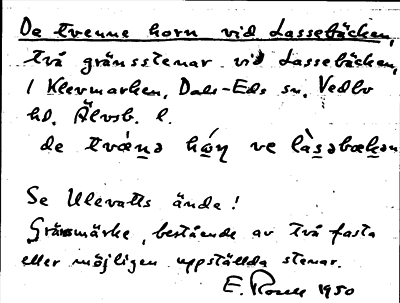 De tvenne horn vid Lassebäcken,
två gränsstenar vid Lassebäcken,
i Klevmarken, Dals-Eds sn, Vedbo
hd, Älvsb. l.
de tvænə hǿn ve làsəbækən
Se Ulevatts ände!
Gränsmärke, bestående av två fasta
eller möjligen uppställda stenar.
E. 1950